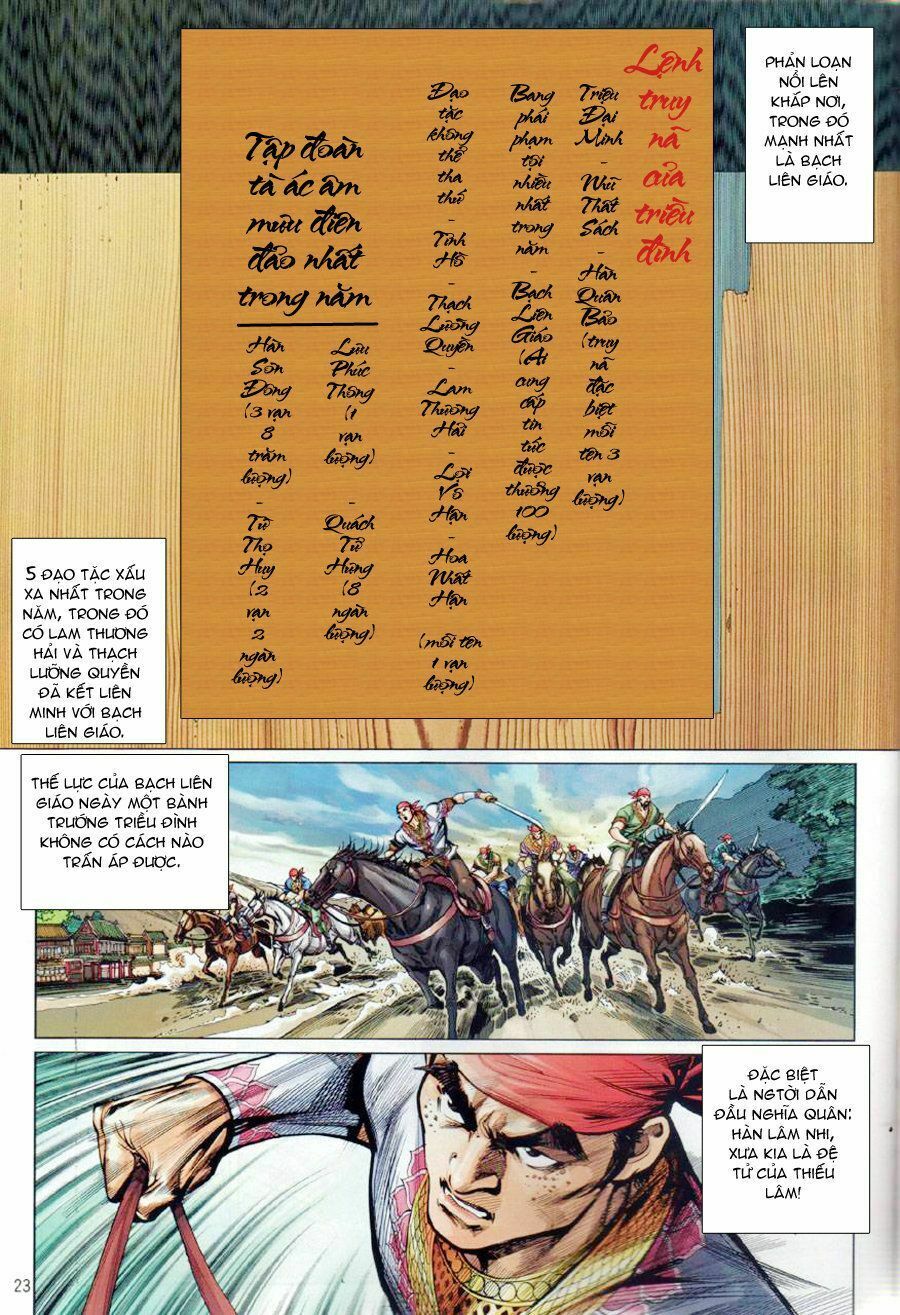 PHẢN LOẠN
NỔI LÊN
KHẮP NƠI,
TRONG ĐÓ
MẠNH NHẤT
LÀ BẠCH
LIÊN GIÁO.
Lệnh
truy
nã
của
triều
đình
Triệu
Đại
Minh
-
Nhũ
Thất
Sách
-
Hàn
Quân
Bảo
(truy
nã
đặc
biệt
mỗi
tên 3
vạn
lượng)
Bang
phái
phạm
tội
nhiều
nhất
trong
năm
-
Bạch
Liên
Giáo
(Ai
cung
cấp
tin
tức
được
thưởng
100
lượng)
Đạo
tặc
không
thể
tha
thứ
-
Tỉnh
Hồ
-
Thạch
Lưỡng
Quyền
-
Lam
Thương
Hải
-
Lợi
Vô
Hạn
-
Hoa
Nhất
Hạn
(mỗi tên
1 vạn
lượng)
Tập đoàn
tà ác âm
mưu điên
đảo nhất
trong năm
Lưu
Phúc
Thông
(1
vạn
lượng)
-
Quách
Tử
Hưng
(8
ngàn
lượng)
Hàn
Sơn
Đồng
(3 vạn
8
trăm
lượng)
-
Từ
Thọ
Huy
(2
vạn
2
ngàn
lượng)
5 ĐẠO TẶC XẤU
XA NHẤT TRONG
NĂM, TRONG ĐÓ
CÓ LAM THƯƠNG
HẢI VÀ THẠCH
LƯỠNG QUYỀN
ĐÃ KẾT LIÊN
MINH VỚI BẠCH
LIÊN GIÁO.
THẾ LỰC CỦA BẠCH LIÊN
GIÁO NGÀY MỘT BÀNH
TRƯỚNG TRIỀU ĐÌNH
KHÔNG CÓ CÁCH NÀO
TRẤN ÁP ĐƯỢC.
ĐẶC BIỆT
LÀ NGTỜI DẪN
ĐẦU NGHĨA QUÂN:
HÀN LÂM NHI,
XƯA KIA LÀ ĐỆ
TỬ CỦA THIẾU
LÂM!
23